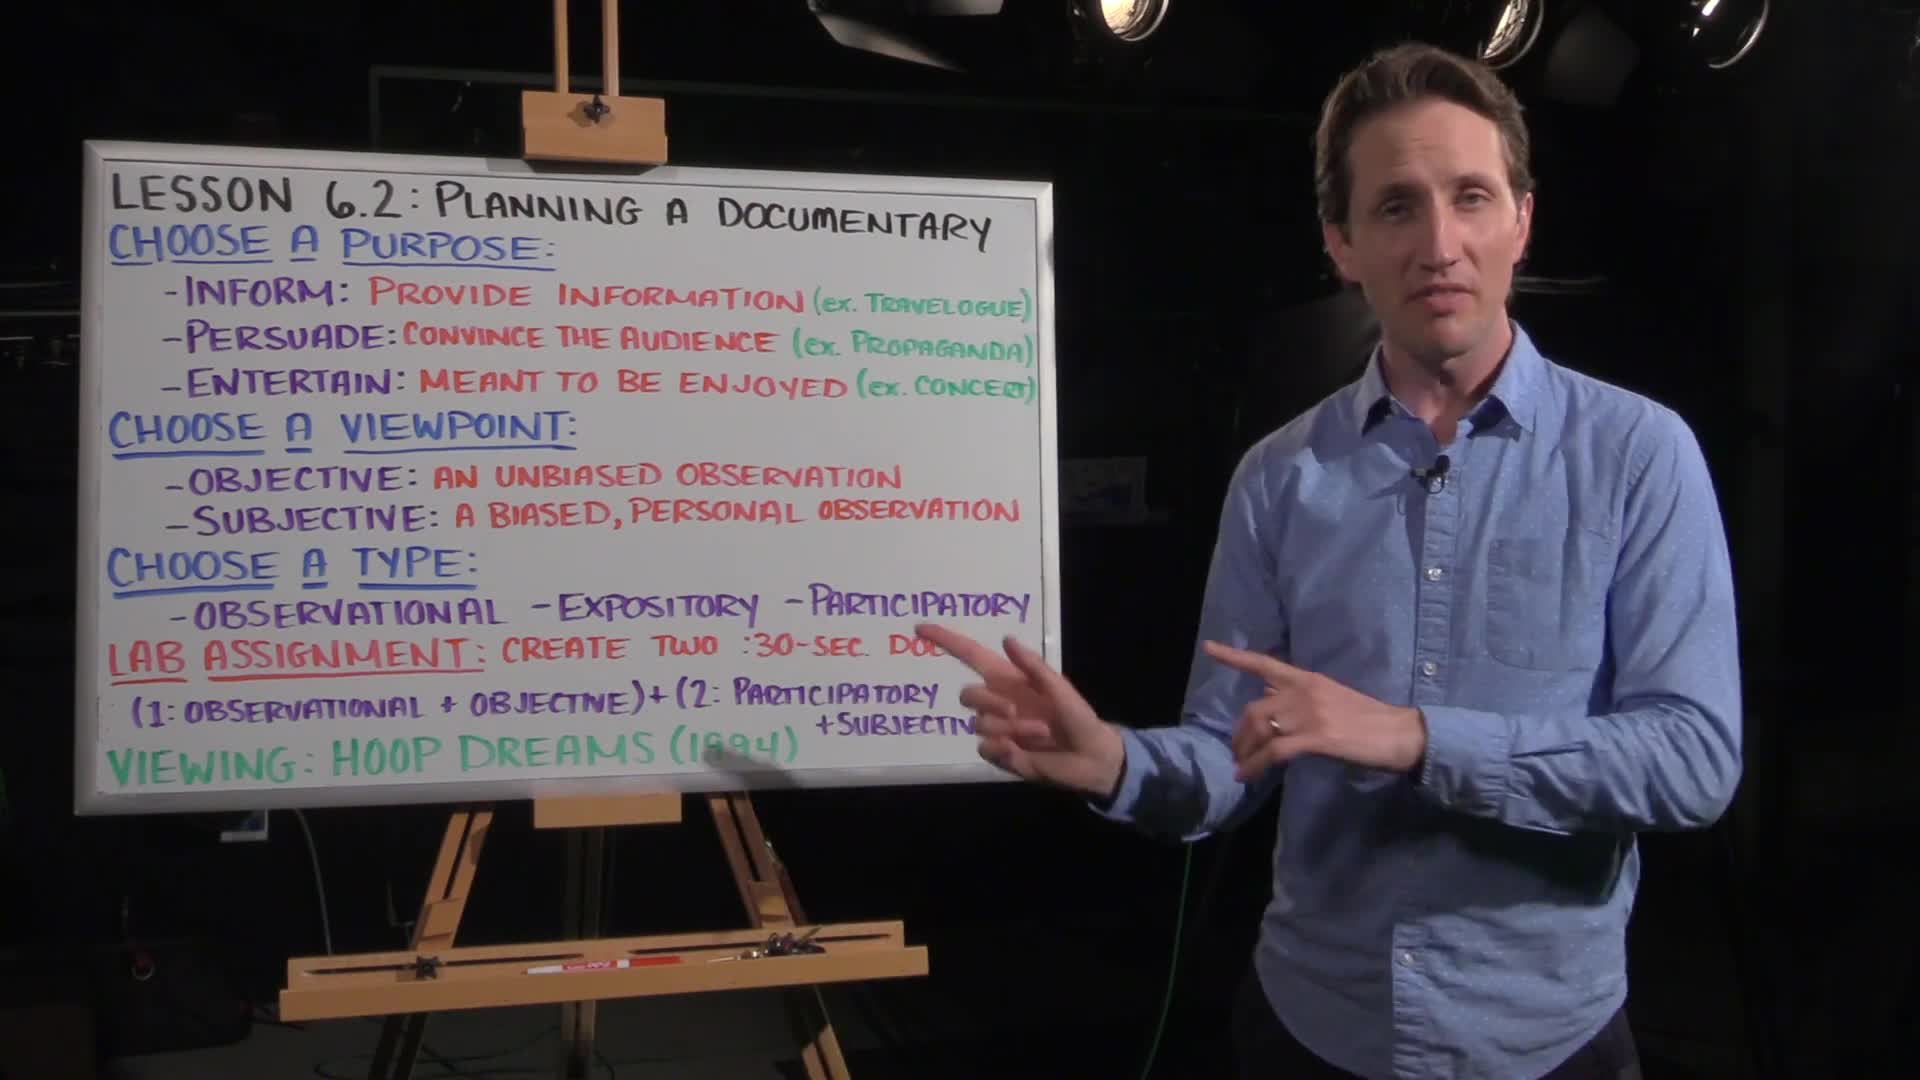 LESSON 6.2: PLANNING A DOCUMENTARY
CHOOSE A PURPOSE:
-INFORM: PROVIDE INFORMATION (ex. TRAVELOGUE)
-PERSUADE: CONVINCE THE AUDIENCE (ex. PROPAGANDA)
-ENTERTAIN: MEANT TO BE ENJOYED (ex. CONCERT)
CHOOSE A VIEWPOINT:
-OBJECTIVE: AN UNBIASED OBSERVATION
-SUBJECTIVE: A BIASED, PERSONAL OBSERVATION
CHOOSE A TYPE:
-OBSERVATIONAL -EXPOSITORY -PARTICIPATORY
LAB ASSIGNMENT: CREATE TWO :30-SEC.
(1: OBSERVATIONAL + OBJECTIVE) + (2: PARTICIPATORY
+SUBJECTIV
VIEWING: HOOP DREAMS (1994)